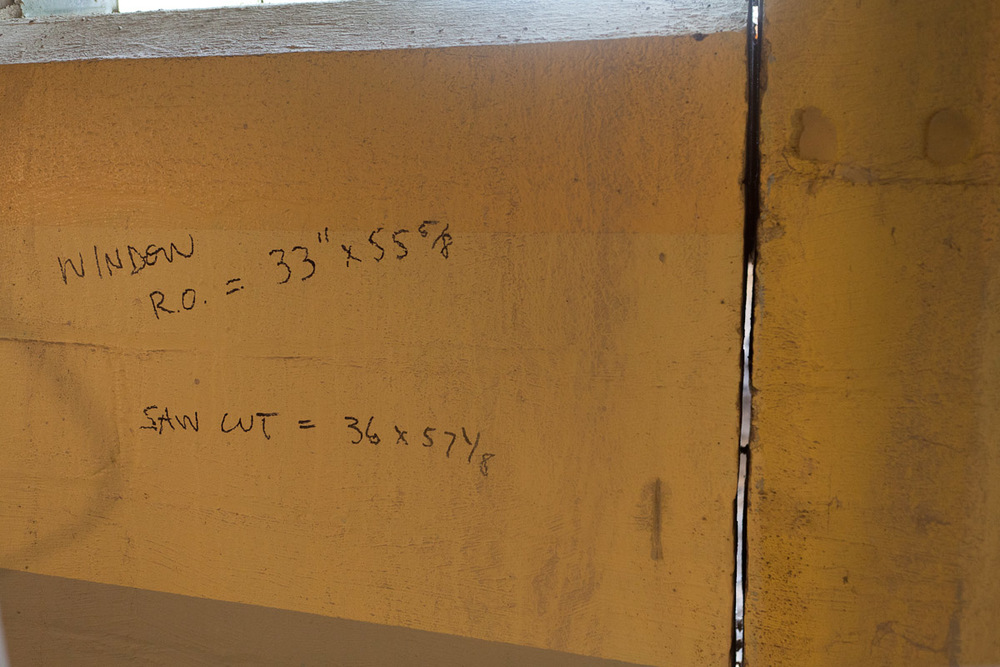 WINDOW
R.O. = 33" x 55 5/8
SAW CUT = 36 x 57 1/8